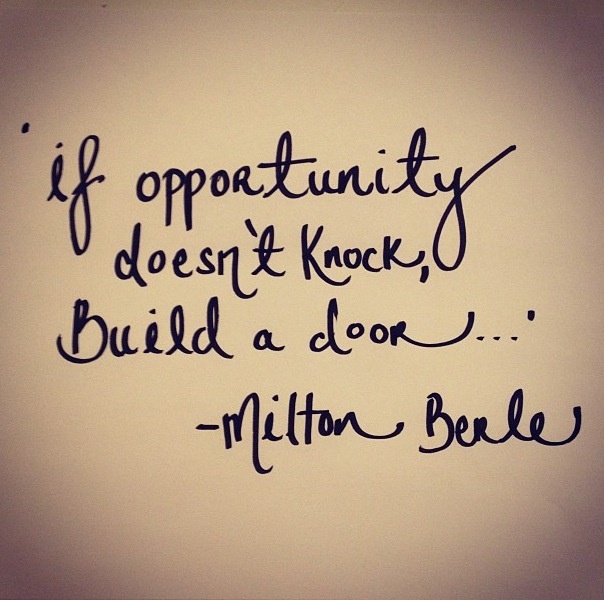 'if opportunity
doesn't Knock,
Build a door...'
-Milton Berle